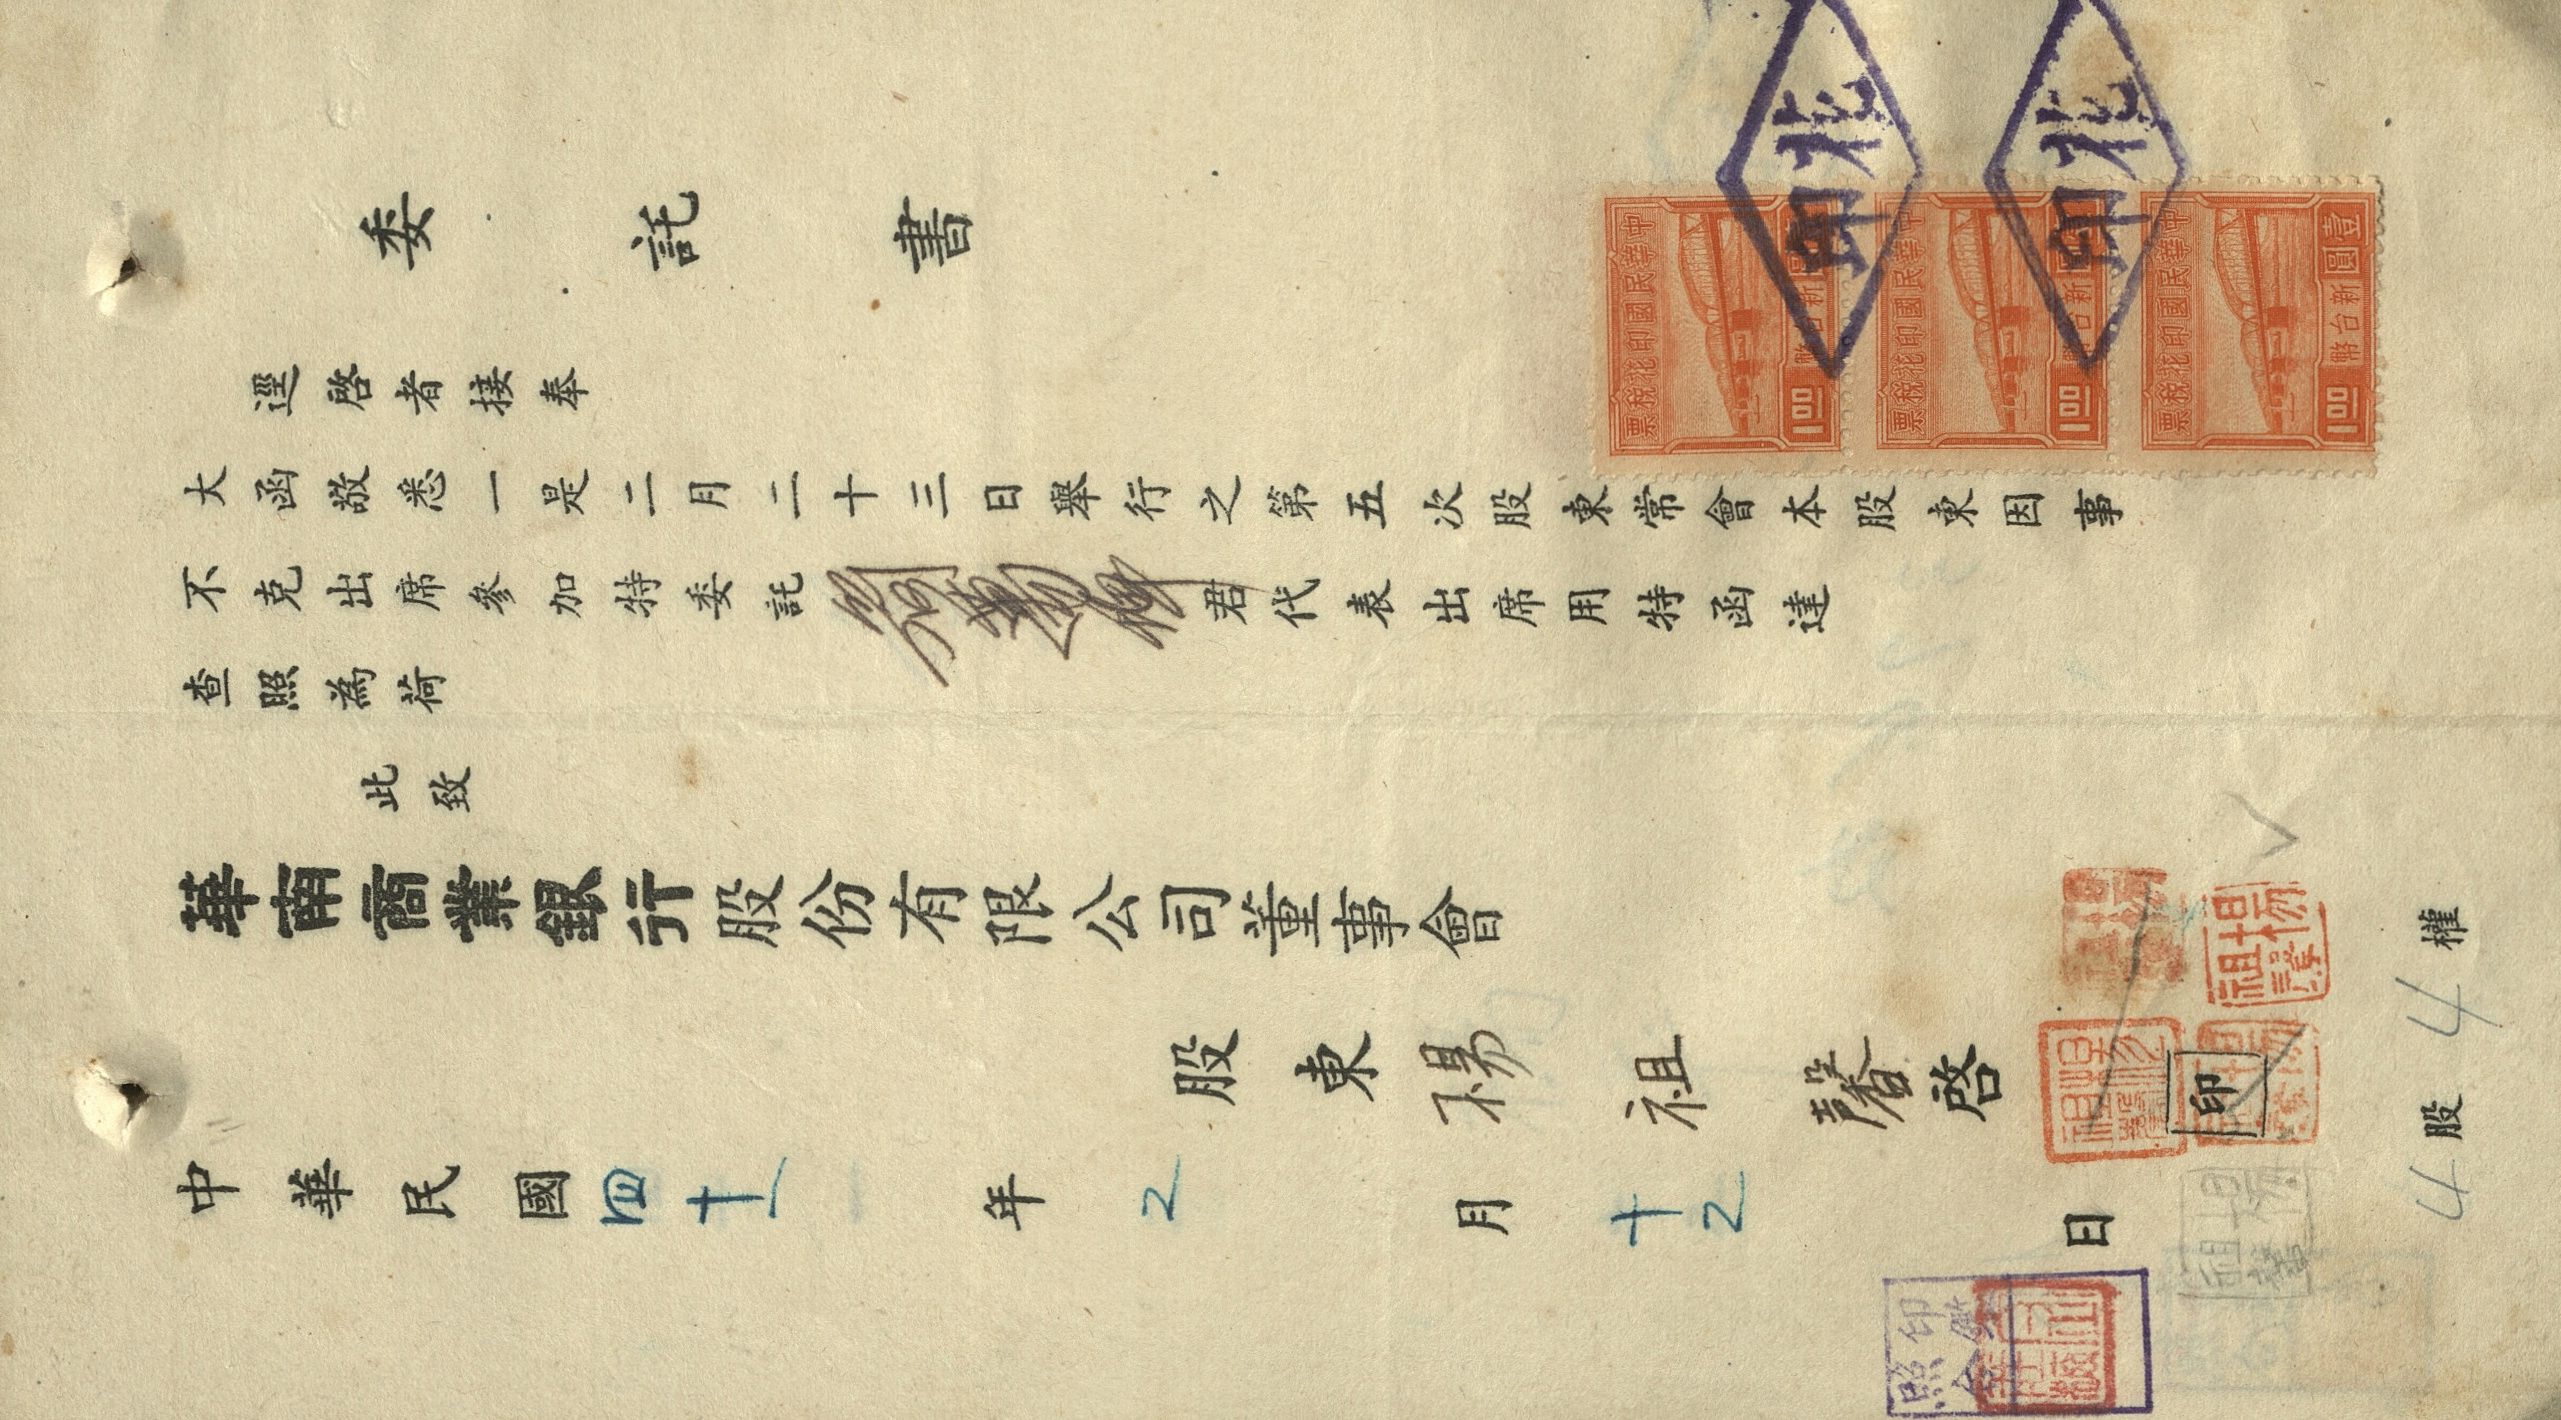 委託書
逕啓者接奉
大函敬悉一是二月二十三日舉行之第五次股東常會本股東因事
不克出席參加特委託
君代表出席用特函達
查照為荷
此致
華南商業銀行股份有限公司董事會
股東楊祖馨啓
印
中華民國四十一年2月十2日
4股4權
中華民國印花稅票
新台幣
1.00
中華民國印花稅票
新台幣
1.00
中華民國印花稅票
壹圓
新台幣
1.00
印花
印花
印鑑
照合